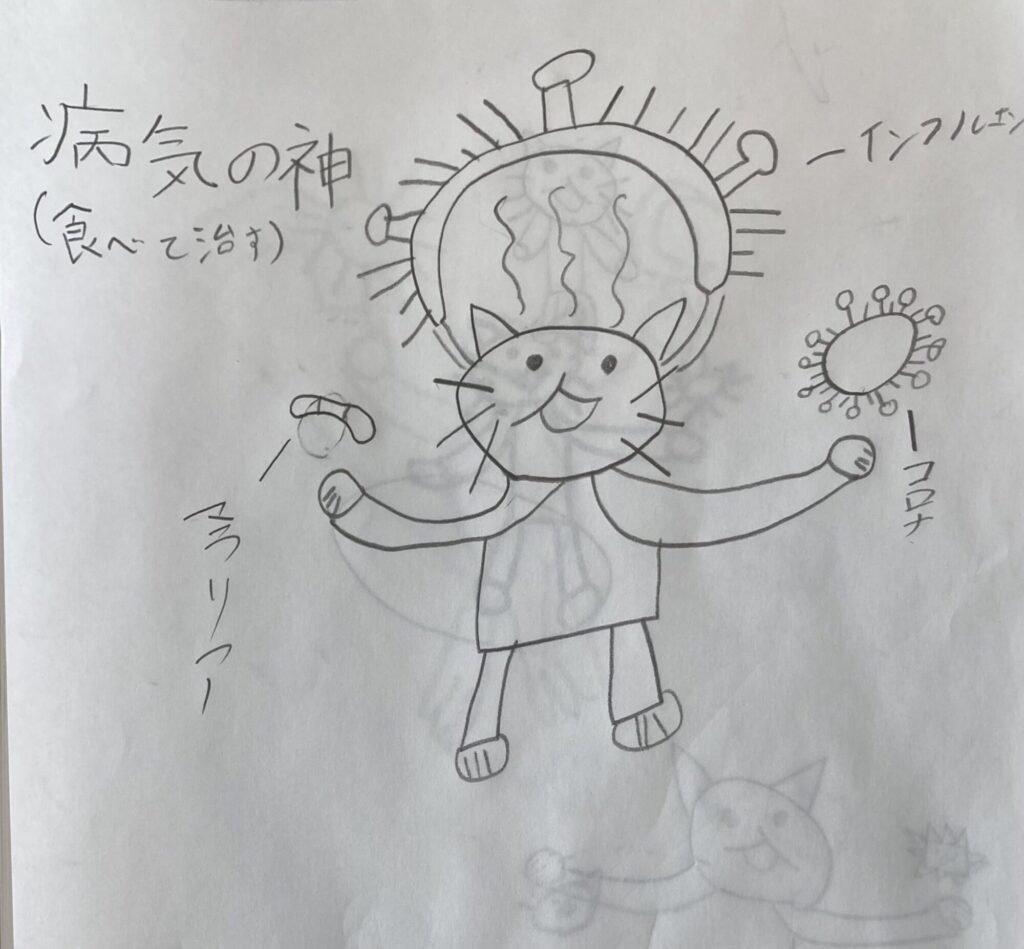 病気の神
(食べて治す)
インフルエン
コロナ
マラリア